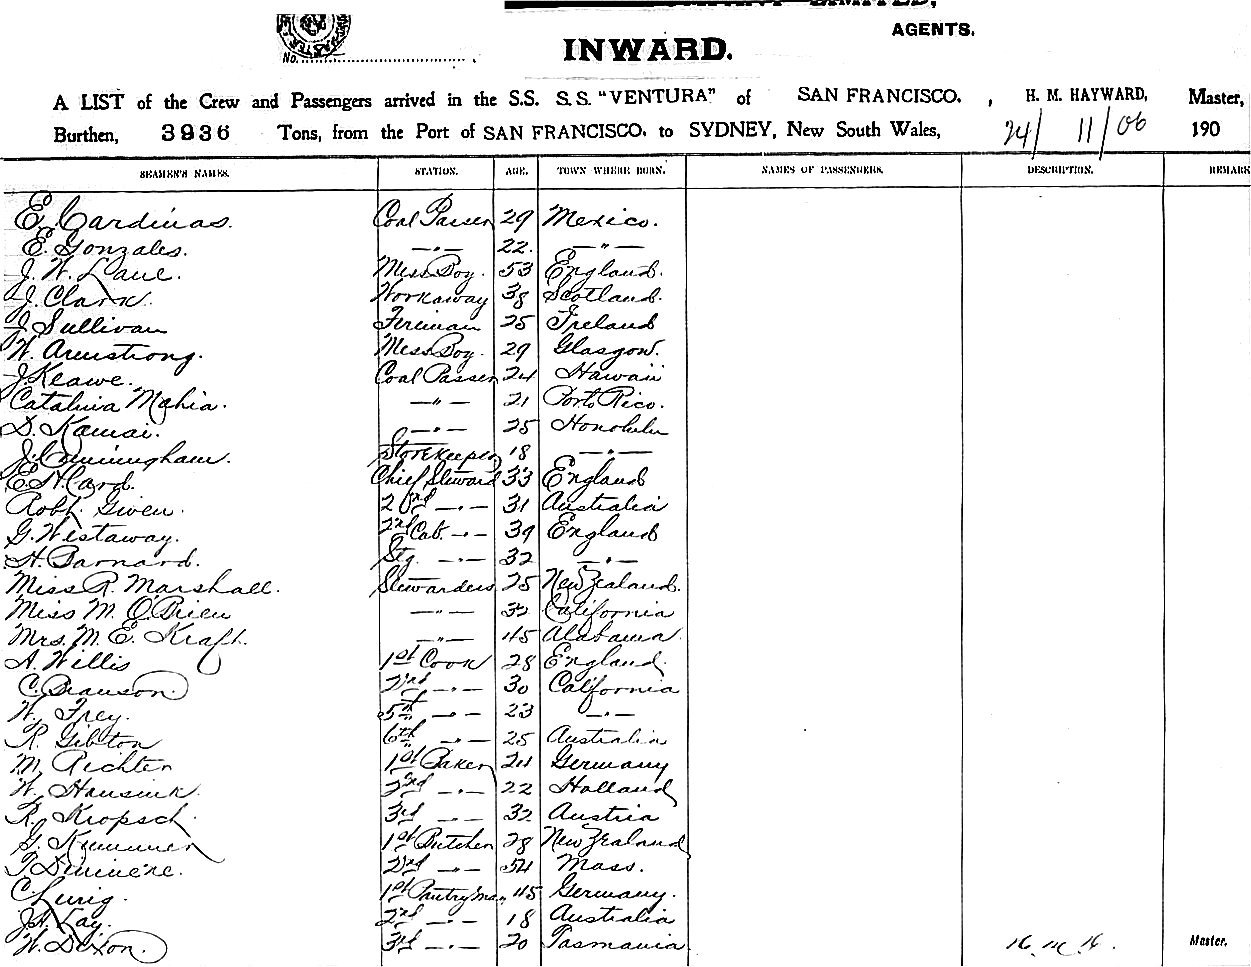 LIMITED,
AGENTS.
No.
INWARD.
A LIST of the Crew and Passengers arrived in the S.S. S.S. "VENTURA" of SAN FRANCISCO. , H. M. HAYWARD, Master,
Burthen, 3936 Tons, from the Port of SAN FRANCISCO. to SYDNEY, New South Wales, 24/ 11/06 190
SEAMEN'S NAMES. STATION. AGE. TOWN WHERE BORN. NAMES OF PASSENGERS. DESCRIPTION. REMARK
E. Cardinas. Coal Passer 29 Mexico.
E. Gonzales. —"— 22. —"—
J. W. Lane. Mess Boy. 53 England.
J. Clark. Workaway 38 Scotland.
J. Sullivan Fireman 25 Ireland
W. Armstrong. Mess Boy. 29 Glasgow.
J. Keawe. Coal Passer 24 Hawaii
Catalina Mahia. —"— 21 Porto Rico.
D. Kamai. —"— 25 Honolulu
J. Cunningham. Storekeeper 18 —"—
E. H. Card. Chief Steward 33 England
Robt. Given. 2nd —"— 31 Australia
G. Westaway. 2nd Cab. —"— 39 England
H. Barnard. Stg. —"— 32 —"—
Miss R. Marshall. Stewardess 25 New Zealand.
Miss M. O'Brien —"— 32 California
Mrs. M. E. Kraft. —"— 45 Alabama.
A. Willis 1st Cook 28 England.
C. Branson. 2nd —"— 30 California
W. Frey. 5th —"— 23 —"—
R. Gibton 6th —"— 25 Australia
M. Richter 1st Baker 24 Germany
W. 2nd —"— 22 Holland
R. Kropsch. 3rd —"— 32 Austria
G. Kummer 1st Butcher 28 New Zealand
2nd —"— 54 Mass.
C. 1st Pantryman 45 Germany.
J. H. Kay. 2nd —"— 18 Australia
W. Dixon. 3rd —"— 20 Tasmania H. M. H. Master.